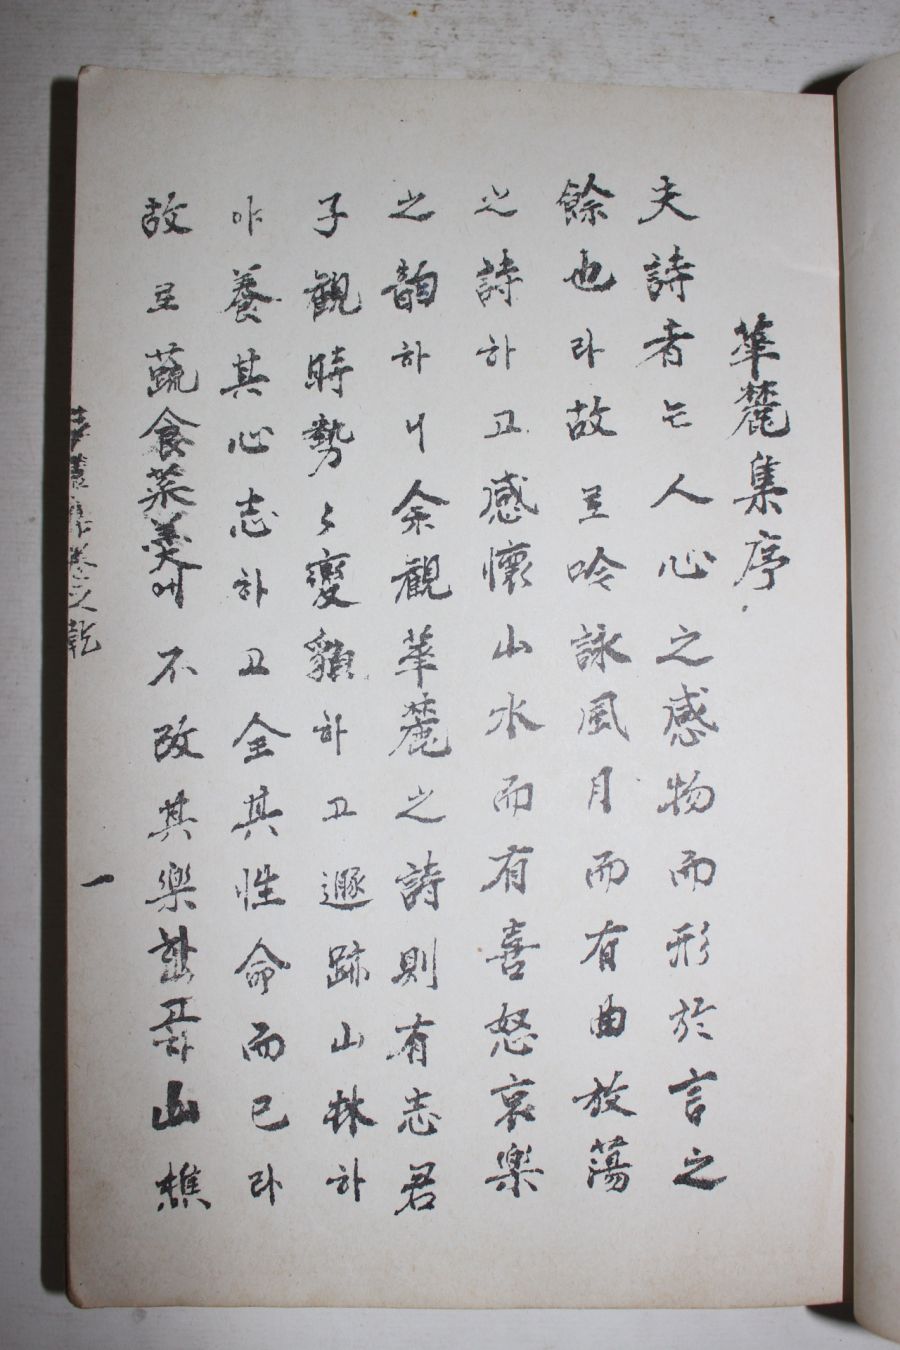 華麓集序
夫詩者는人心之感物而形於言之
餘也라故로吟詠風月而有曲放蕩
之詩하고感懷山水而有喜怒哀樂
之韵하니余觀華麓之詩則有志君
子觀時勢々變貌하고遯跡山林하
야養其心志하고全其性命而已라
故로蔬食菜羹에不改其樂하고山樵
一